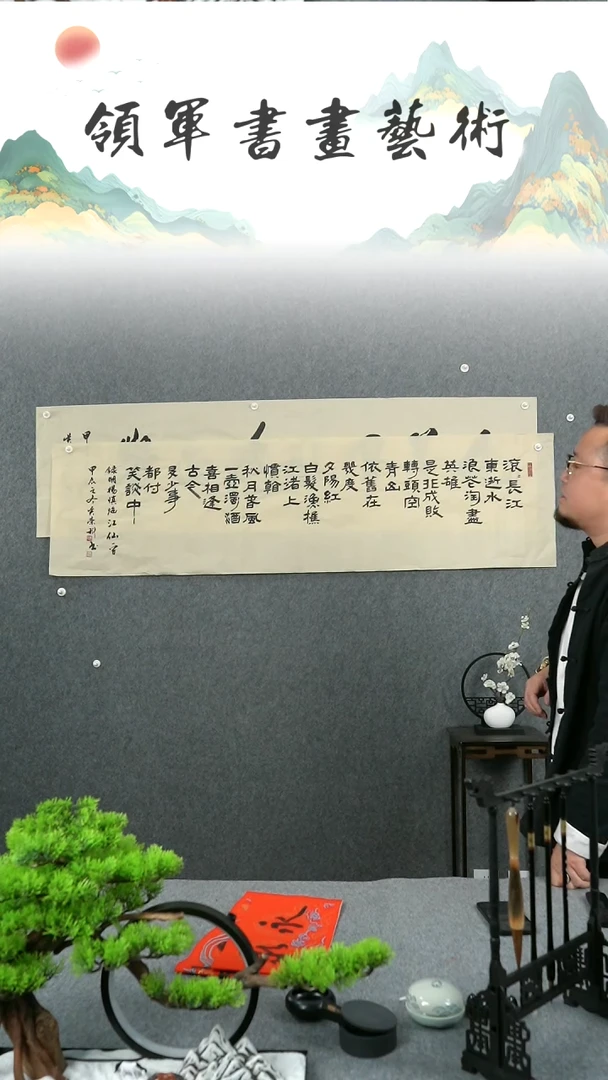 領軍書畫藝術
滾長江
東逝水
浪花淘盡
英雄
是非成敗
轉頭空
青山
依舊在
幾度
夕陽紅
白髮漁樵
江渚上
慣看
秋月春風
一壺濁酒
喜相逢
古今
多少事
都付
笑談中
錄明楊慎臨江仙
甲辰之冬
甲